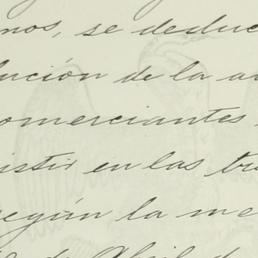 mos, se deduc
lución de la a
omerciantes
istir en las tr
según la me
de Abril d